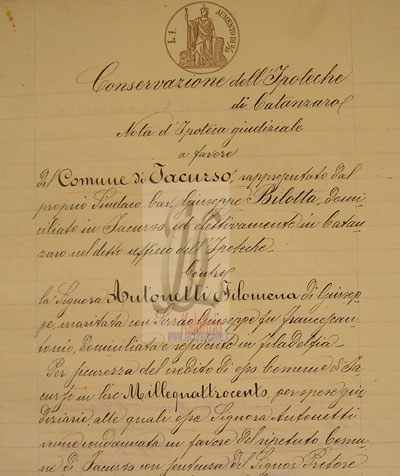 L. 1. AUMENTO DI 2/10
Conservazione dell'Ipoteche
di Catanzaro
Nota d'Ipoteca giudiziale
a favore
del Comune di Jacurso, rappresentato dal
proprio Sindaco Cav. Giuseppe Bilotta, domi
ciliato in Jacurso, ed elettivamente in Catan
zaro nel detto ufficio dell'Ipoteche.
Contro
la Signora Antonetti Filomena di Giusep
pe, maritata con Serrao Giuseppe fu Francescan
tonio, domiciliata e residente in Filadelfia
Per sicurezza del credito di esso Comune di Ja
curso in lire Millequattrocento, per spese giu
diziarie, alle quali essa Signora Antonetti
venne condannata in favore del ripetuto Comu
ne di Jacurso con sentenza del Signor Pretore